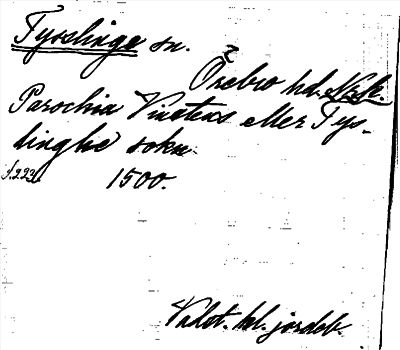 Tysslinge sn.
Örebro hd. Nrk.
Parochia Vintens eller Tys-
linghe sokn
f. 223
1500.
Vadst. kl. jordeb.